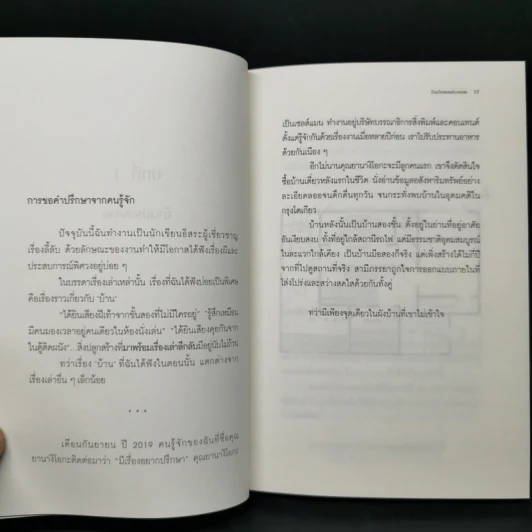 การขอคำปรึกษาจากคนรู้จัก
ปัจจุบันนี้ฉันทำงานเป็นนักเขียนอิสระผู้เชี่ยวชาญ
เรื่องลี้ลับ ด้วยลักษณะของงานทำให้มีโอกาสได้ฟังเรื่องผีและ
ประสบการณ์พิศวงอยู่บ่อย ๆ
ในบรรดาเรื่องเล่าเหล่านั้น เรื่องที่ฉันได้ฟังบ่อยเป็นพิเศษ
คือเรื่องราวเกี่ยวกับ 'บ้าน'
"ได้ยินเสียงฝีเท้าจากชั้นสองที่ไม่มีใครอยู่" "รู้สึกเหมือน
มีคนมองเวลาอยู่คนเดียวในห้องนั่งเล่น" "ได้ยินเสียงคุยกันจาก
ในตู้ติดผนัง"...สิ่งปลูกสร้างที่มาพร้อมเรื่องเล่าลึกลับมีอยู่นับไม่ถ้วน
ทว่าเรื่อง 'บ้าน' ที่ฉันได้ฟังในตอนนั้น แตกต่างจาก
เรื่องเล่าอื่น ๆ เล็กน้อย
* * *
เดือนกันยายน ปี 2019 คนรู้จักของฉันที่ชื่อคุณ
ยานางิโอกะติดต่อมาว่า "มีเรื่องอยากปรึกษา" คุณยานางิโอกะ
17
เป็นเซลส์แมน ทำงานอยู่บริษัทบรรณาธิการสิ่งพิมพ์และคอนเทนต์
ตั้งแต่รู้จักกันด้วยเรื่องงานเมื่อหลายปีก่อน เราไปรับประทานอาหาร
ด้วยกันเนือง ๆ
อีกไม่นานคุณยานางิโอกะจะมีลูกคนแรก เขาจึงตัดสินใจ
ซื้อบ้านเดี่ยวหลังแรกในชีวิต นั่งอ่านข้อมูลอสังหาริมทรัพย์อย่าง
ละเอียดลออจนดึกดื่นทุกวัน จนกระทั่งพบบ้านในอุดมคติใน
กรุงโตเกียว
บ้านหลังนั้นเป็นบ้านสองชั้น ตั้งอยู่ในย่านที่อยู่อาศัย
อันเงียบสงบ ทั้งที่อยู่ใกล้สถานีรถไฟ แต่มีธรรมชาติอุดมสมบูรณ์
ในละแวกใกล้เคียง เป็นบ้านมือสองก็จริง แต่เพิ่งสร้างได้ไม่กี่ปี
จากที่ไปดูสถานที่จริง สามีภรรยาถูกใจการออกแบบภายในที่
โล่งโปร่งและสว่างสดใสด้วยกันทั้งคู่
ทว่ามีเพียงจุดเดียวในผังบ้านที่เขาไม่เข้าใจ